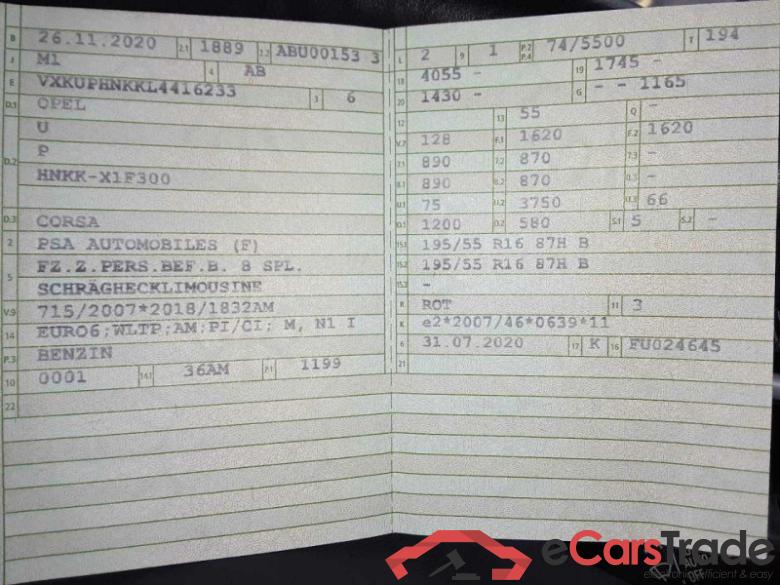 B 26.11.2020 2.1 1889 2.2 ABU00153 3
J M1 4 AB
E VXKUPHNKKL4416233 3 6
D.1 OPEL
U
D.2 P
HNKK-X1F300
D.3 CORSA
2 PSA AUTOMOBILES (F)
5 FZ.Z.PERS.BEF.B. 8 SPL.
SCHRÄGHECKLIMOUSINE
V.9 715/2007*2018/1832AM
14 EURO6;WLTP;AM;PI/CI; M, N1 I
P.3 BENZIN
10 0001 14.1 36AM P.1 1199
22
L 2 9 1 P.2 P.4 74/5500 T 194
18 4055 - 19 1745 -
20 1430 - G - - 1165
12 - 13 55 Q -
V.7 128 F.1 1620 F.2 1620
7.1 890 7.2 870 7.3 -
8.1 890 8.2 870 8.3 -
U.1 75 U.2 3750 U.3 66
O.1 1200 O.2 580 S.1 5 S.2 -
15.1 195/55 R16 87H B
15.2 195/55 R16 87H B
15.3 -
R ROT 11 3
K e2*2007/46*0639*11
6 31.07.2020 17 K 16 FU024645
21
eCarsTrade